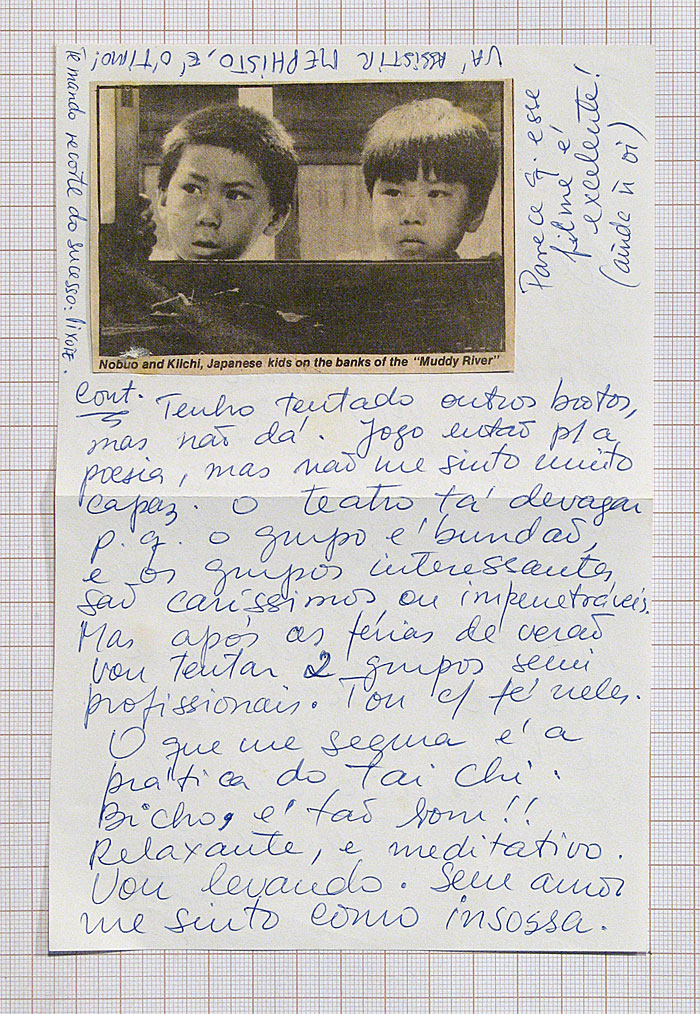 VÁ ASSISTIR MEPHISTO, É ÓTIMO!
Te mando recorte do sucesso: PIXOTE.
Parece q. esse
filme é
excelente!
(ainda ñ vi)
Nobuo and Kiichi, Japanese kids on the banks of the "Muddy River"
Cont. Tenho tentado outros brotos,
mas não dá. Jogo então p/ a
poesia, mas não me sinto muito
capaz. O teatro tá devagar
p. q. o grupo é bundão,
e os grupos interessantes
são caríssimos ou impenetráveis.
Mas após as férias de verão
vou tentar 2 grupos semi
profissionais. Tou c/ fé neles.
O que me segura é a
prática do Tai Chi.
Bicho, é tão bom!!
Relaxante, e meditativo.
Vou levando. Sem amor
me sinto como insossa.